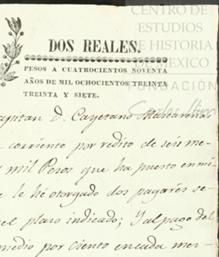 CENTRO DE
ESTUDIOS
DE HISTORIA
DE MÉXICO
FUNDACIÓN
Carlos Slim
DOS REALES.
PESOS A CUATROCIENTOS NOVENTA
AÑOS DE MIL OCHOCIENTOS TREINTA
TREINTA Y SIETE.
Capitan D. Cayetano
corriente por redito de seis me
mil Pesos que ha puesto en mi
le he otorgado dos pagarés se
el plazo indicado; Y al pago del
medio por ciento en cada mes